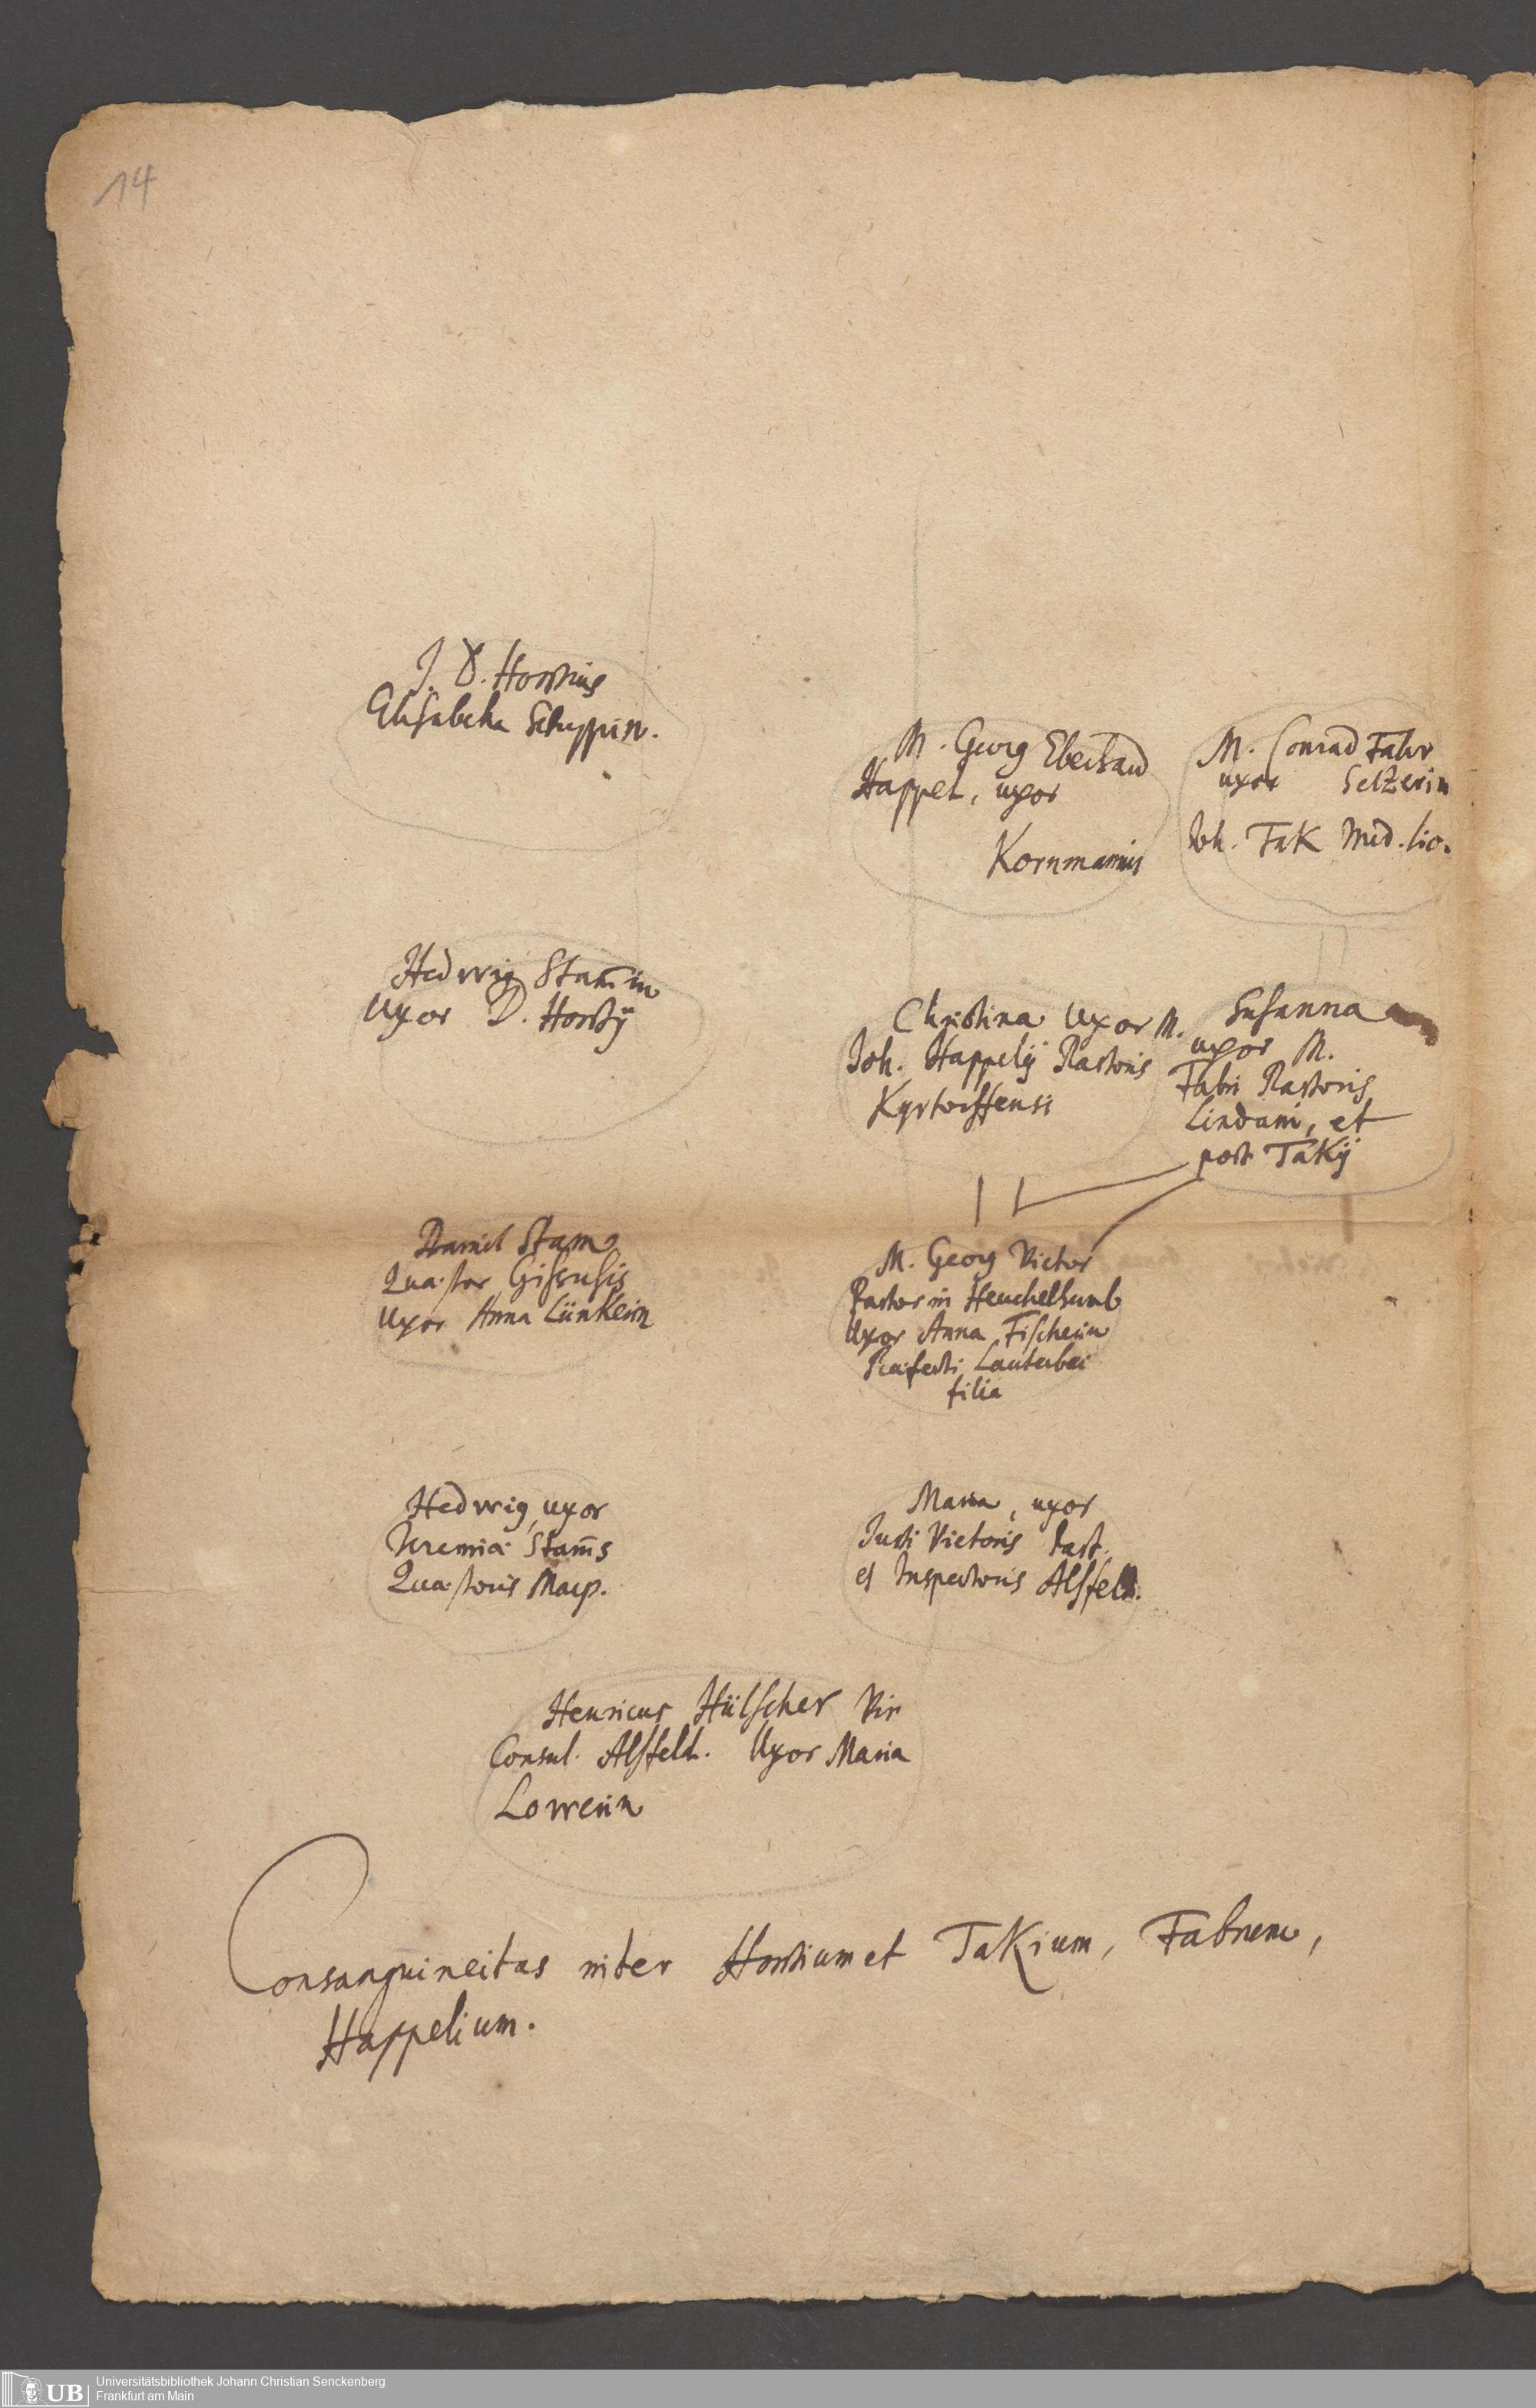 14
J. D. Horstius
Elisabetha Schuppin.
M. Georg Eberhard
Happel, uxor
Kornmannis
M. Conrad Fabr
uxor Selzerin
Joh. Tak Med. lic.
Hedwig Stam̄in
Uxor D. Horstij
Christina Uxor M.
Joh. Happelij Pastoris
Kyrtorffensi
Susanna
uxor M.
Fabri Pastoris
Lindani, et
post Takij
Daniel Stam
Quæstor Gissensis
Uxor Anna Lünkerin
M. Georg Victor
Pastor in Heuchelheimb
Uxor Anna Fischerin
Præfecti Lauterbac
filia
Hedwig, uxor
Jeremiæ Stam̄s
Quæstoris Marp.
Maria, uxor
Justi Victoris Past.
et Inspectoris Alsfeld.
Henricus Hülscher Vir
Consul. Alsfeld. Uxor Maria
Lowerin
Consanguineitas inter Horstium et Takium, Fabrum,
Happelium.
UB
Universitätsbibliothek Johann Christian Senckenberg
Frankfurt am Main